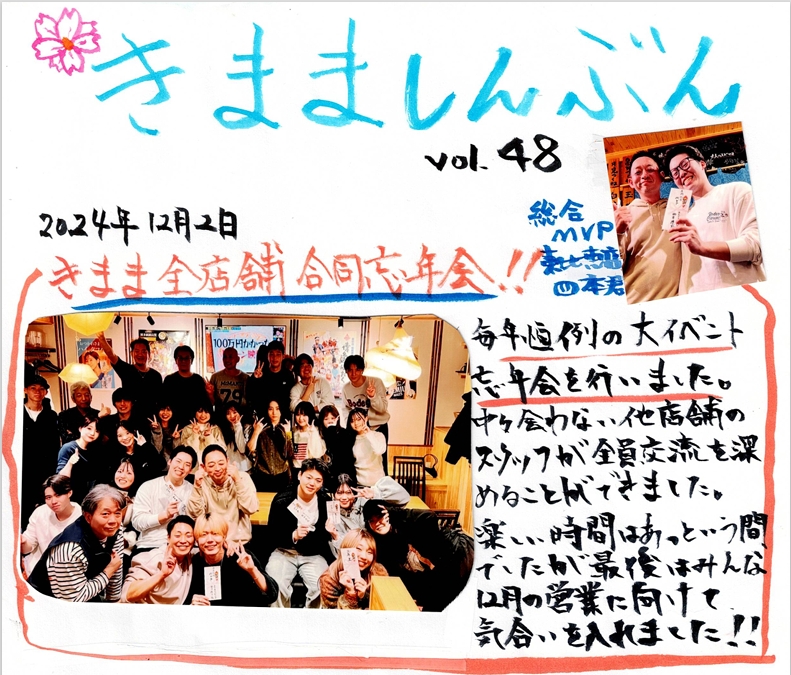 きまましんぶん
vol. 48
2024年12月2日
総合
MVP
恵比寿店
四本君
きまま全店舗合同忘年会!!
毎年恒例の大イベント
忘年会を行いました。
中々会わない他店舗の
スタッフが全員交流を深
めることができました。
楽しい時間はあっという間
でしたが最後はみんな
12月の営業に向けて
気合いを入れました!!
100万円かかった